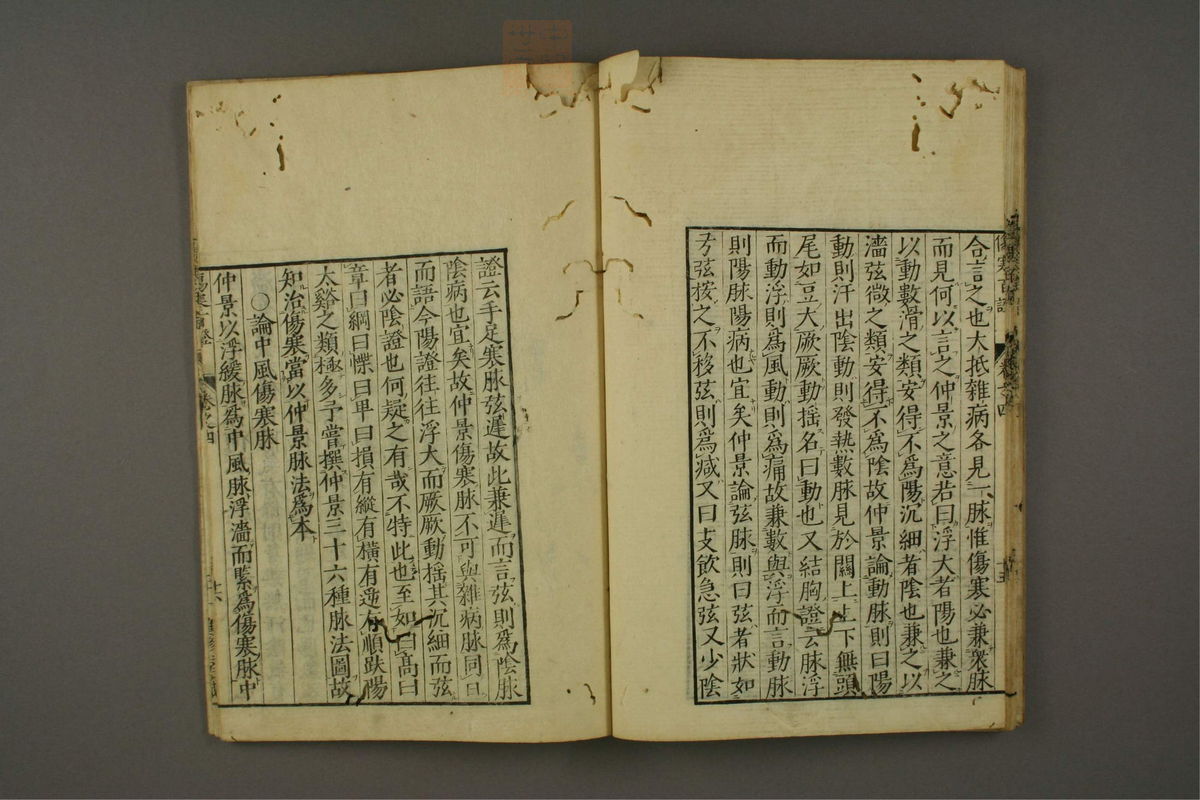 合言之也大抵雜病各見一脉惟傷寒必兼衆脉
而見何以言之仲景之意若曰浮大者陽也兼之
以動數滑之類安得不爲陽沉細者陰也兼之以
濇弦微之類安得不爲陰故仲景論動脉則曰陽
動則汗出陰動則發熱數脉見於關上上下無頭
尾如豆大厥厥動揺名曰動也又結胸證云脉浮
而動浮則爲風動則爲痛故兼數與浮而言動脉
則陽脉陽病也宜矣仲景論弦脉則曰弦者狀如
弓弦按之不移弦則爲减又曰支飲急弦又少陰
證云手足寒脉弦遲故此兼遲而言弦則爲陰脉
陰病也宜矣故仲景傷寒脉不可與雜病脉同日
而語今陽證往往浮大而厥厥動揺其沉細而弦
者必陰證也何疑之有哉不特此也至如曰高曰
章曰綱曰惵曰卑曰損有縱有橫有逆有順趺陽
太谿之類極多予嘗撰仲景三十六種脉法圖故
知治傷寒當以仲景脉法爲本
○論中風傷寒脉
仲景以浮緩脉爲中風脉浮濇而緊爲傷寒脉中
卷之四
十六